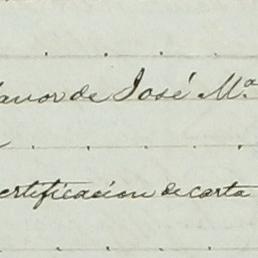 favor de José Mª
ertificacion de carta